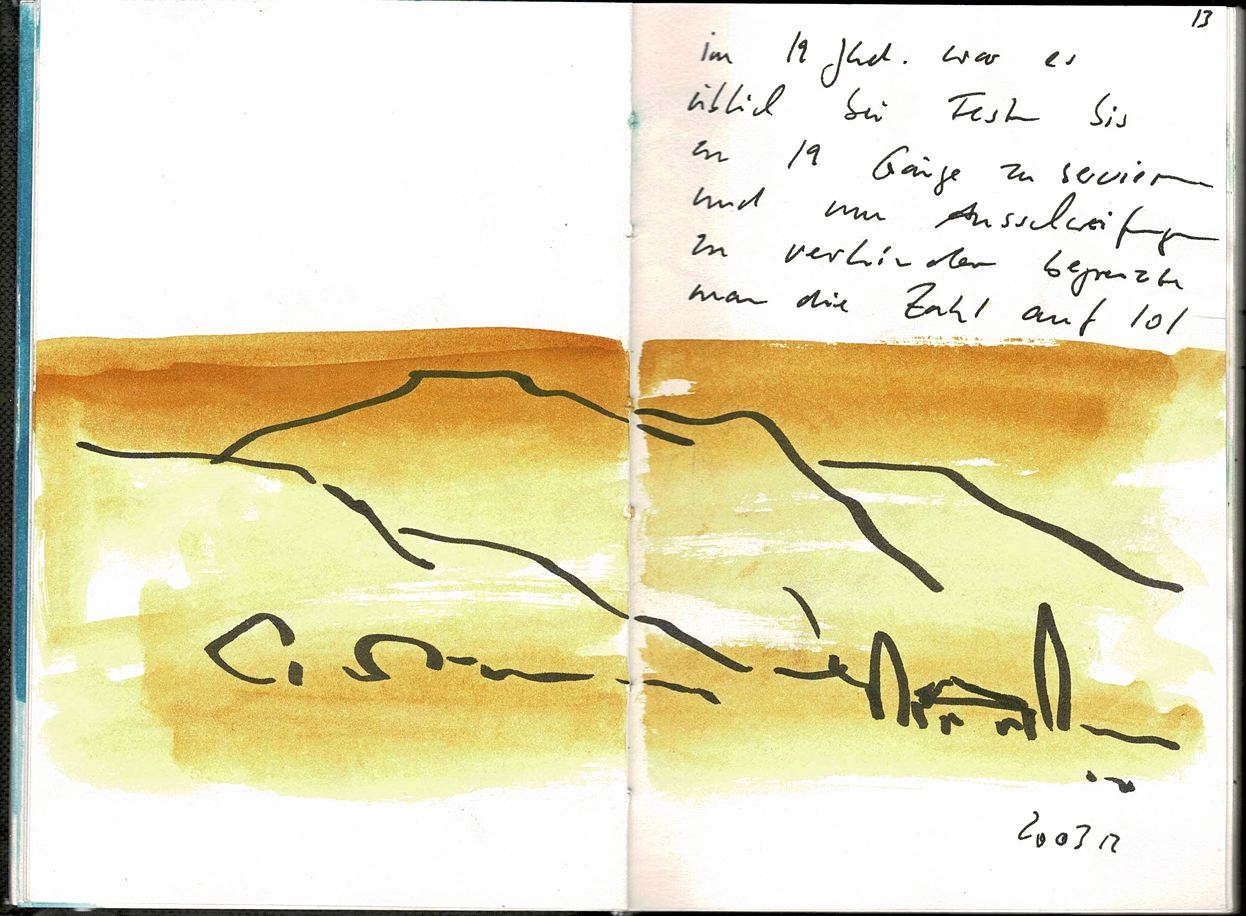 13
im 19 Jhd. war es
üblich bei Festen bis
zu 19 Gänge zu servieren
und um Ausschweifungen
zu verhindern begrenzte
man die Zahl auf 10!
2003